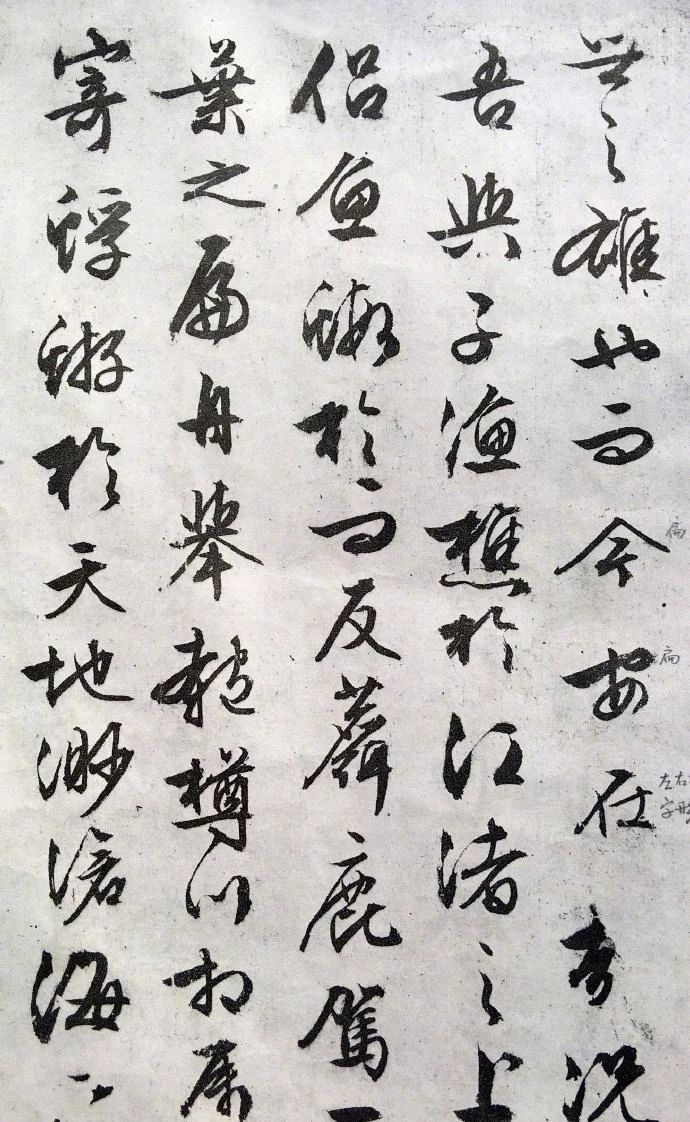 世之雄也而今安在哉况
吾與子漁樵於江渚之上
侣魚蝦於而友麋鹿駕一
葉之扁舟舉匏樽以相屬
寄蜉蝣於天地渺滄海之
扁
扁
左右
字形